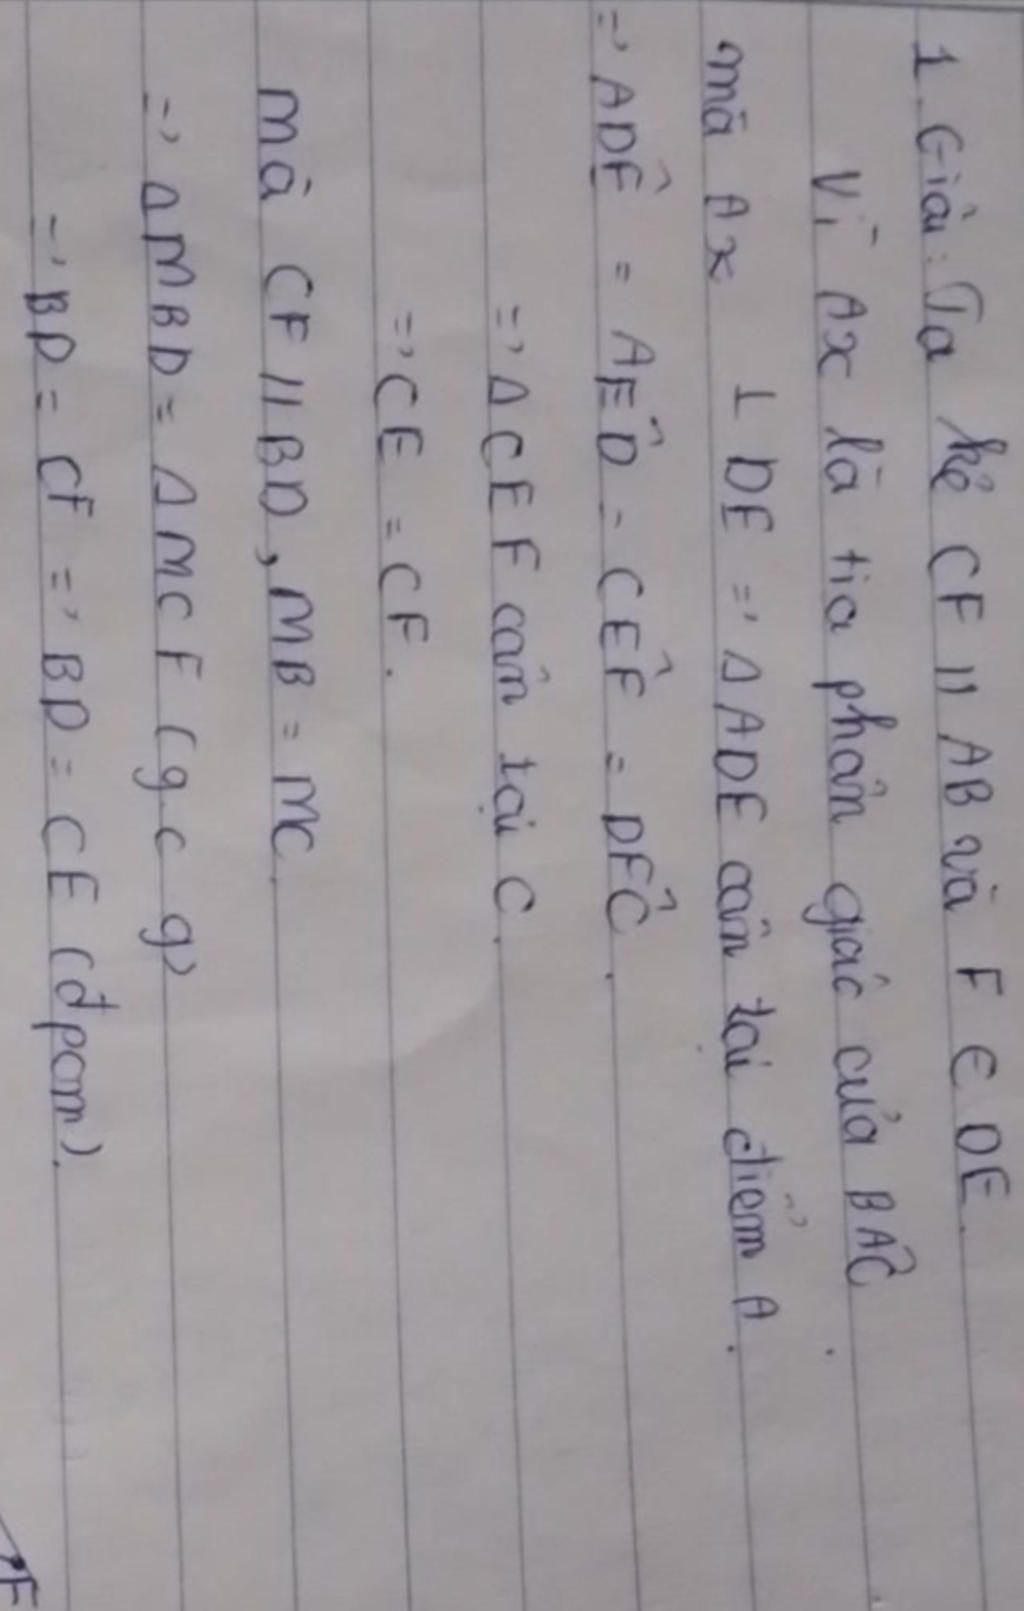 1. Giải: Ta kẻ CF // AB và F ∈ DE.
Vì Ax là tia phân giác của BÂC.
mà Ax ⊥ DE => Δ ADE cân tại điểm A.
=> ADÊ = AÊD = CÊF = DF̂C.
=> Δ CEF cân tại C.
=> CE = CF.
mà CF // BD, MB = MC.
=> Δ MBD = Δ MCF (g c g)
=> BD = CF => BD = CE (đpcm).
F